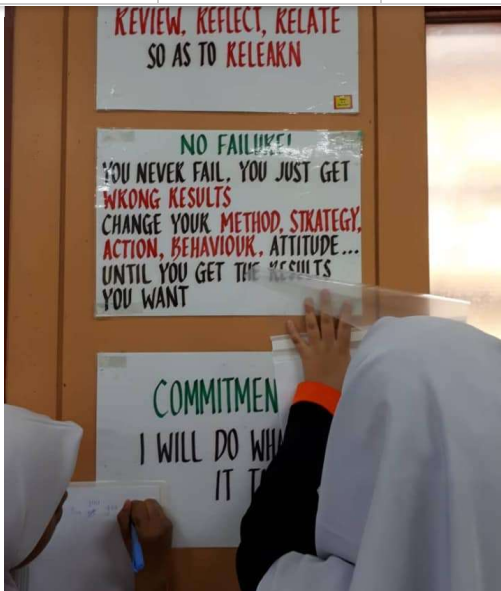 REVIEW, REFLECT, RELATE
SO AS TO RELEARN
NO FAILURE!
YOU NEVER FAIL, YOU JUST GET
WRONG RESULTS
CHANGE YOUR METHOD, STRATEGY,
ACTION, BEHAVIOUR, ATTITUDE...
UNTIL YOU GET THE RESULTS
YOU WANT
COMMITMEN
I WILL DO WHA
IT T